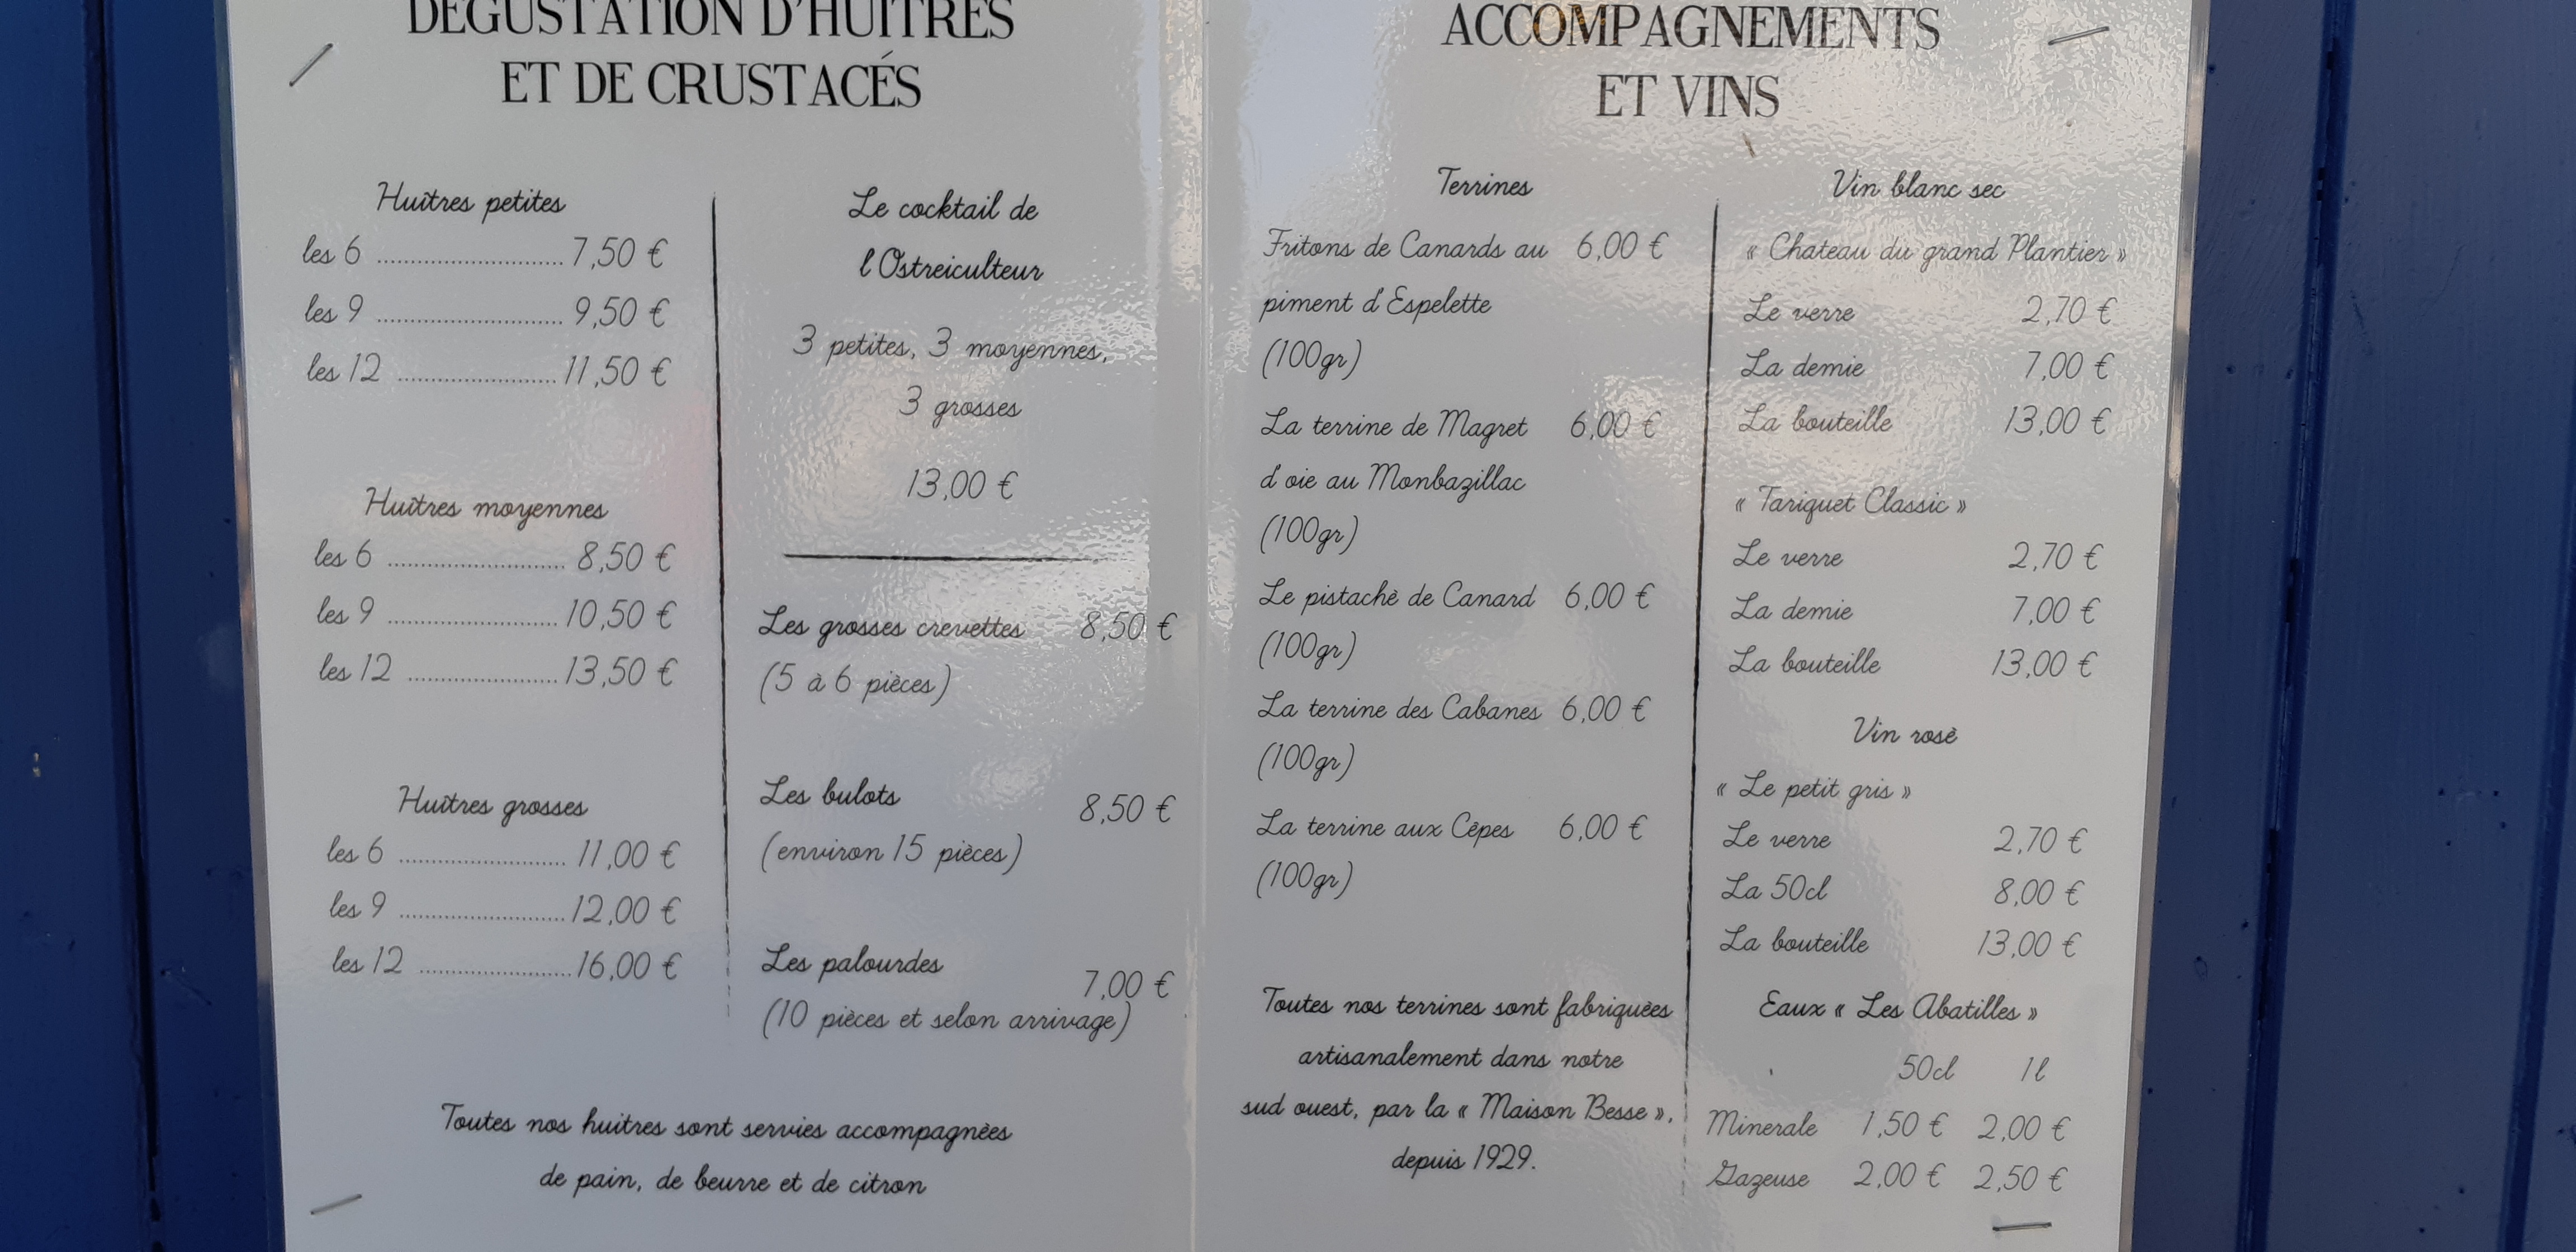 DÉGUSTATION D'HUÎTRES
ET DE CRUSTACÉS
Huîtres petites
les 6 ............................ 7,50 €
les 9 ............................ 9,50 €
les 12 ........................ 11,50 €
Huîtres moyennes
les 6 ........................... 8,50 €
les 9 .......................... 10,50 €
les 12 ....................... 13,50 €
Huîtres grosses
les 6 ......................... 11,00 €
les 9 ......................... 12,00 €
les 12 ....................... 16,00 €
Le cocktail de
l'Ostreiculteur
3 petites, 3 moyennes,
3 grosses
13,00 €
Les grosses crevettes 8,50 €
(5 à 6 pièces)
Les bulots 8,50 €
(environ 15 pièces)
Les palourdes 7,00 €
(10 pièces et selon arrivage)
Toutes nos huitres sont servies accompagnées
de pain, de beurre et de citron
ACCOMPAGNEMENTS
ET VINS
Terrines
Fritons de Canards au 6,00 €
piment d'Espelette
(100gr)
La terrine de Magret 6,00 €
d'oie au Monbazillac
(100gr)
Le pistaché de Canard 6,00 €
(100gr)
La terrine des Cabanes 6,00 €
(100gr)
La terrine aux Cèpes 6,00 €
(100gr)
Toutes nos terrines sont fabriquées
artisanalement dans notre
sud ouest, par la « Maison Besse »,
depuis 1929.
Vin blanc sec
« Chateau du grand Plantier »
Le verre 2,70 €
La demie 7,00 €
La bouteille 13,00 €
« Tariquet Classic »
Le verre 2,70 €
La demie 7,00 €
La bouteille 13,00 €
Vin rosé
« Le petit gris »
Le verre 2,70 €
La 50cl 8,00 €
La bouteille 13,00 €
Eaux « Les Abatilles »
50cl 1l
Minerale 1,50 € 2,00 €
Gazeuse 2,00 € 2,50 €